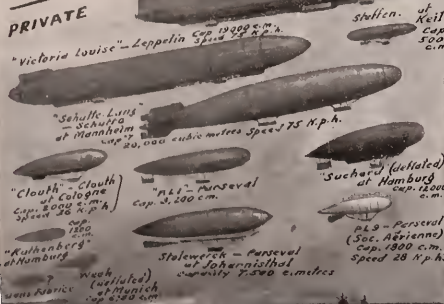 PRIVATE
Steffen. at
Keil
Cap
500
c.m.
"Victoria Louise" - Zeppelin Cap 19000 c.m.
Speed 75 K.p.h.
"Schulte-Lanz"
- Schutto
at Mannheim
Cap
20,000 cubic metres Speed 75 K.p.h.
"Clouth" - Clouth
at Cologne
Cap. 2000 c.m.
Speed 36 K.p.h
"PL1" - Parseval
Cap. 3,200 cm.
"Suchard (deflated)
at Hamburg
Cap. 12000
c.m.
Cap.
1200
c.m.
"Ruthenberg"
at Hamburg
Stolewerck - Parseval
at Joharnisthal
capacity 7.500 c.metres
PL9 - Parseval
(Soc. Aérienne)
Cap. 1800 c.m.
Speed 28 K.p.h.
Weah
(deflated)
at Munich
cap 6500 c.m